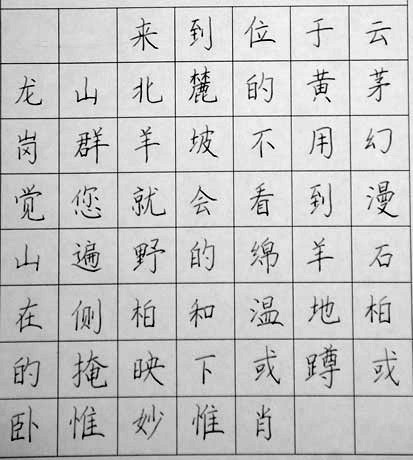 来到位于云
龙山北麓的黄茅
岗群羊坡不用幻
觉您就会看到漫
山遍野的绵羊石
在侧柏和温地柏
的掩映下或蹲或
卧惟妙惟肖